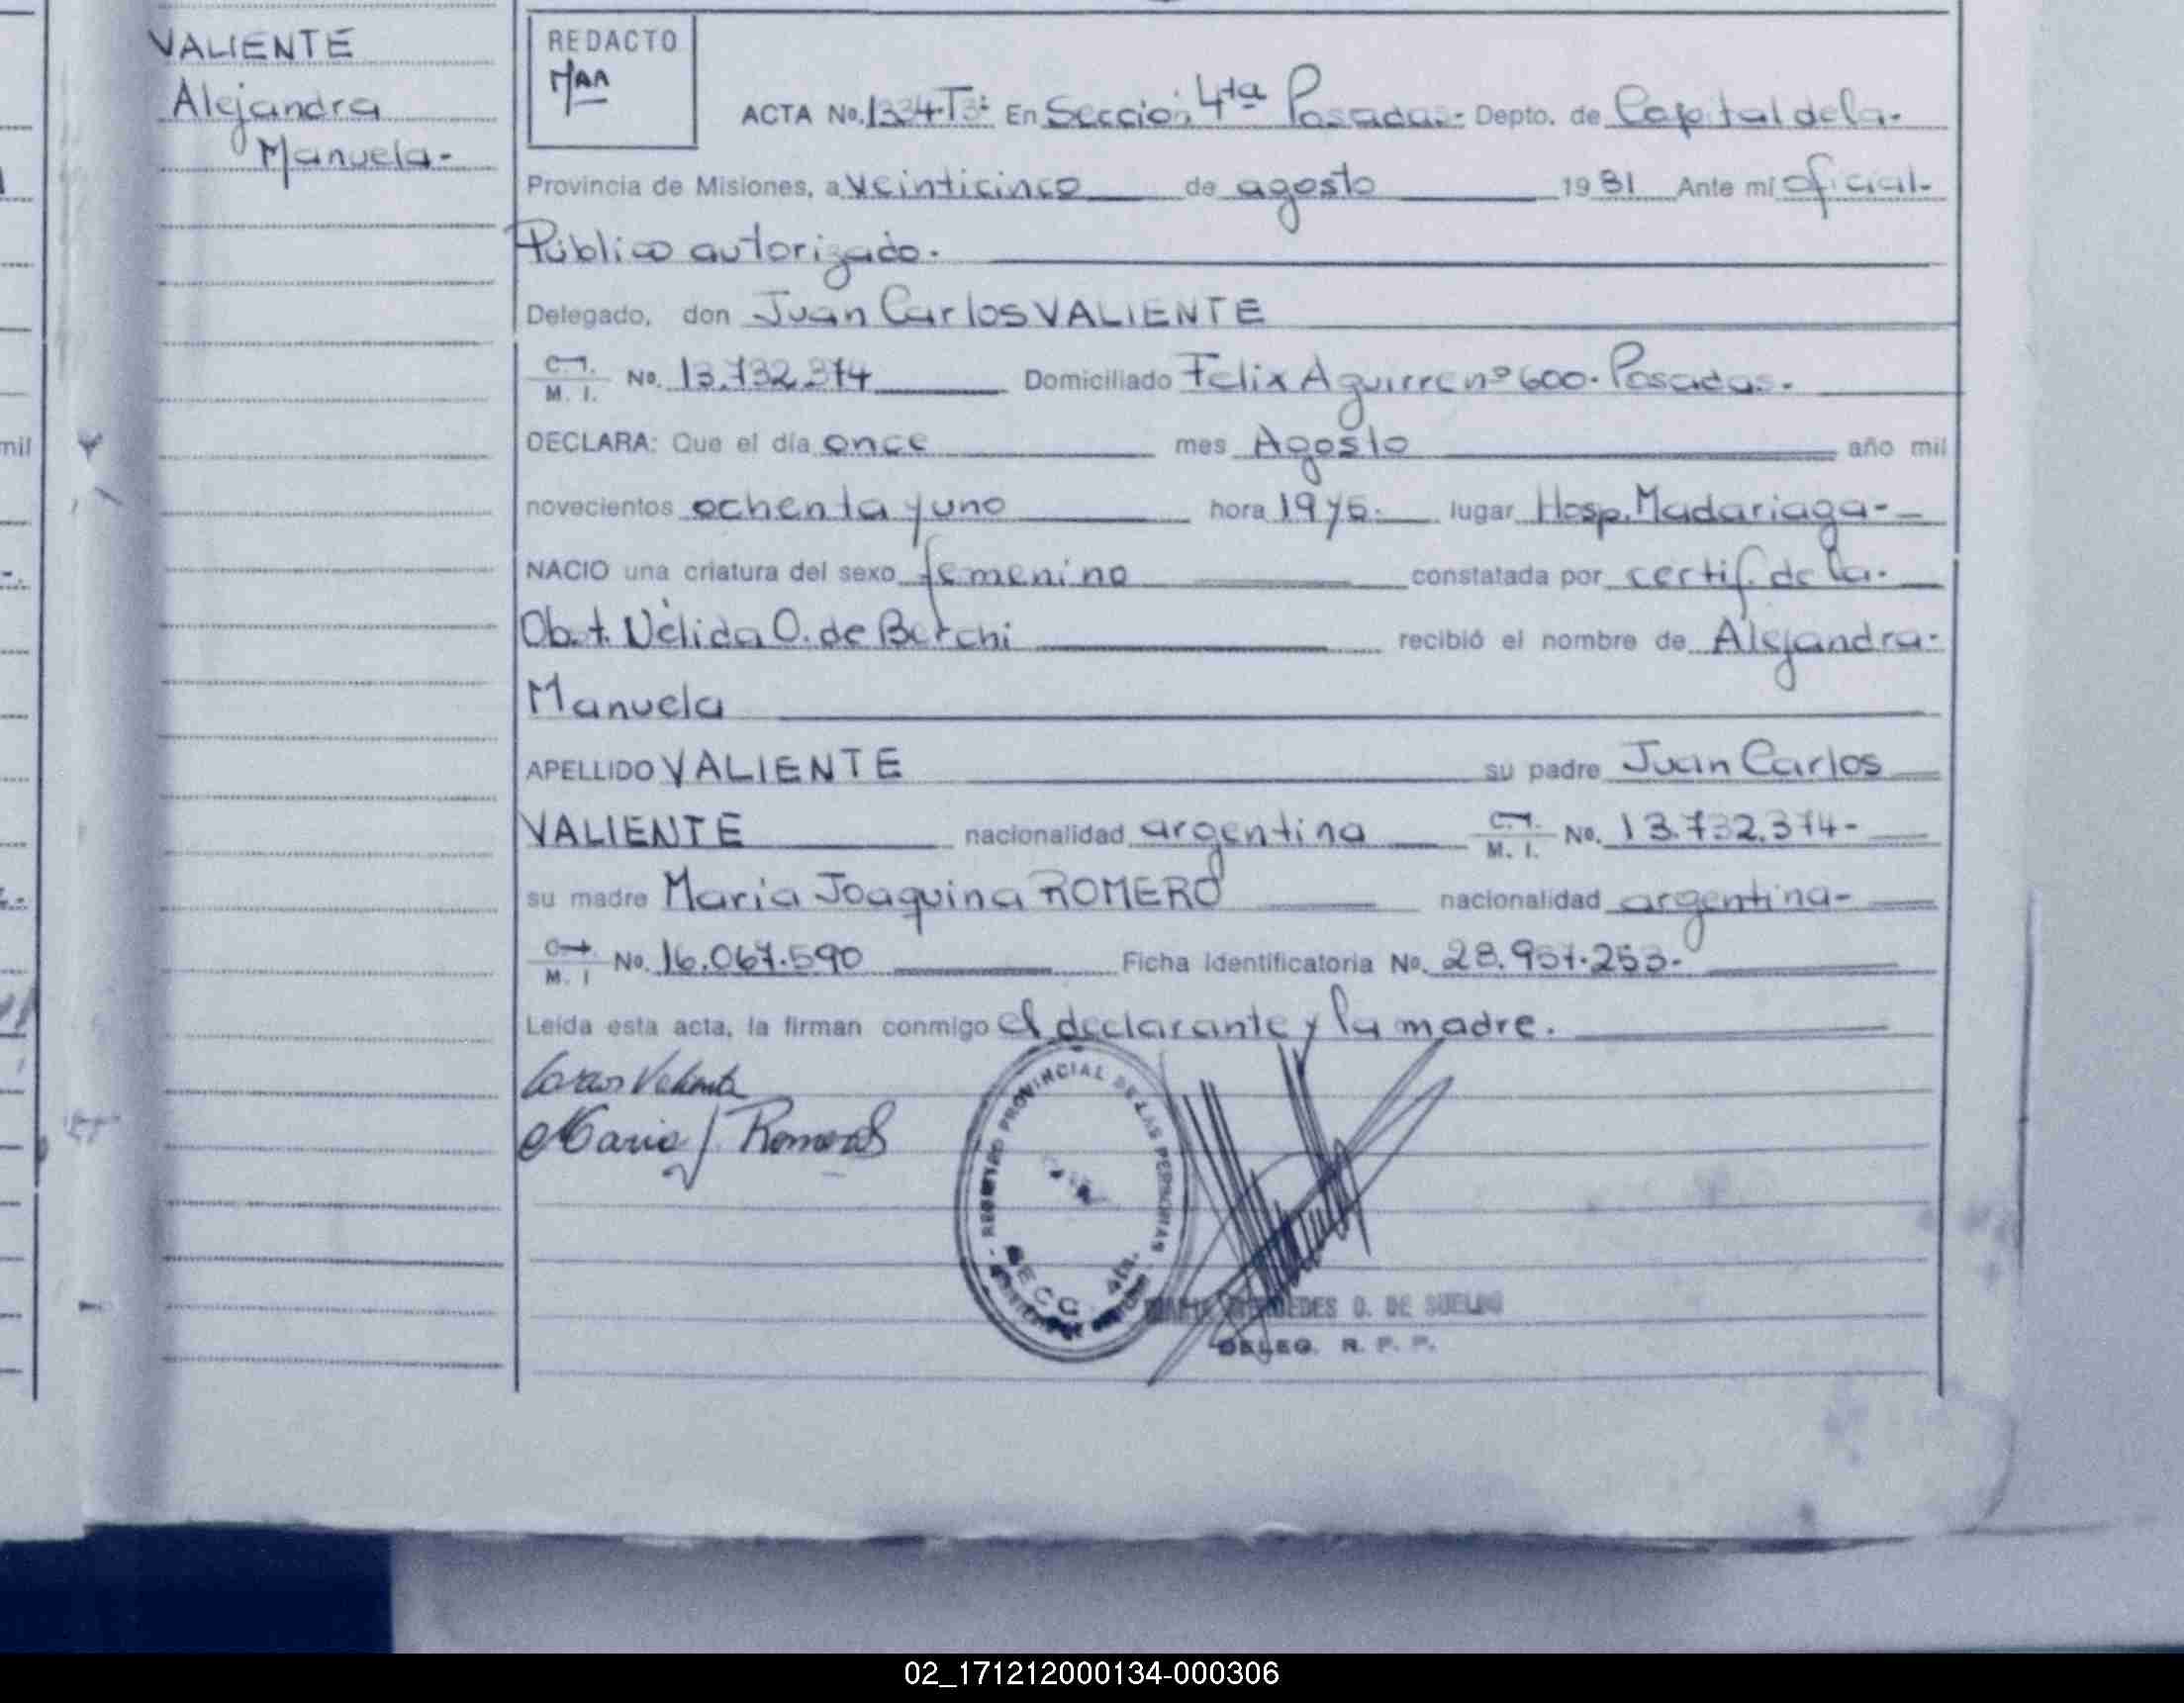 VALIENTE
Alejandra
Manuela-
REDACTO
MAA
ACTA No. 1334-T3: En Sección 4ta Posadas- Depto. de Capital de la-
Provincia de Misiones, a veinticinco de agosto 1981 Ante mí oficial-
Público autorizado.
Delegado, don Juan Carlos VALIENTE
C.I. M. I. No. 13.732.374 Domiciliado Felix Aguirre nº 600. Posadas.
DECLARA: Que el día once mes Agosto año mil
novecientos ochenta y uno hora 19 y 5. lugar Hosp. Madariaga-
NACIO una criatura del sexo femenino constatada por certif. de la.
Obst. Nélida O. de Berchi recibió el nombre de Alejandra-
Manuela
APELLIDO VALIENTE su padre Juan Carlos
VALIENTE nacionalidad argentina C.I. M. I. No. 13.732.374-
su madre Maria Joaquina ROMERO nacionalidad argentina-
C.I. M. I No. 16.067.590 Ficha Identificatoria No. 28.957.253-
Leída esta acta, la firman conmigo el declarante y la madre.
Carlos Valiente
Maria J. Romero
REGISTRO PROVINCIAL DE LAS PERSONAS
SECC. 4ta.
MERCEDES D. DE
DELEG. R. P. P.
mil
02_171212000134-000306